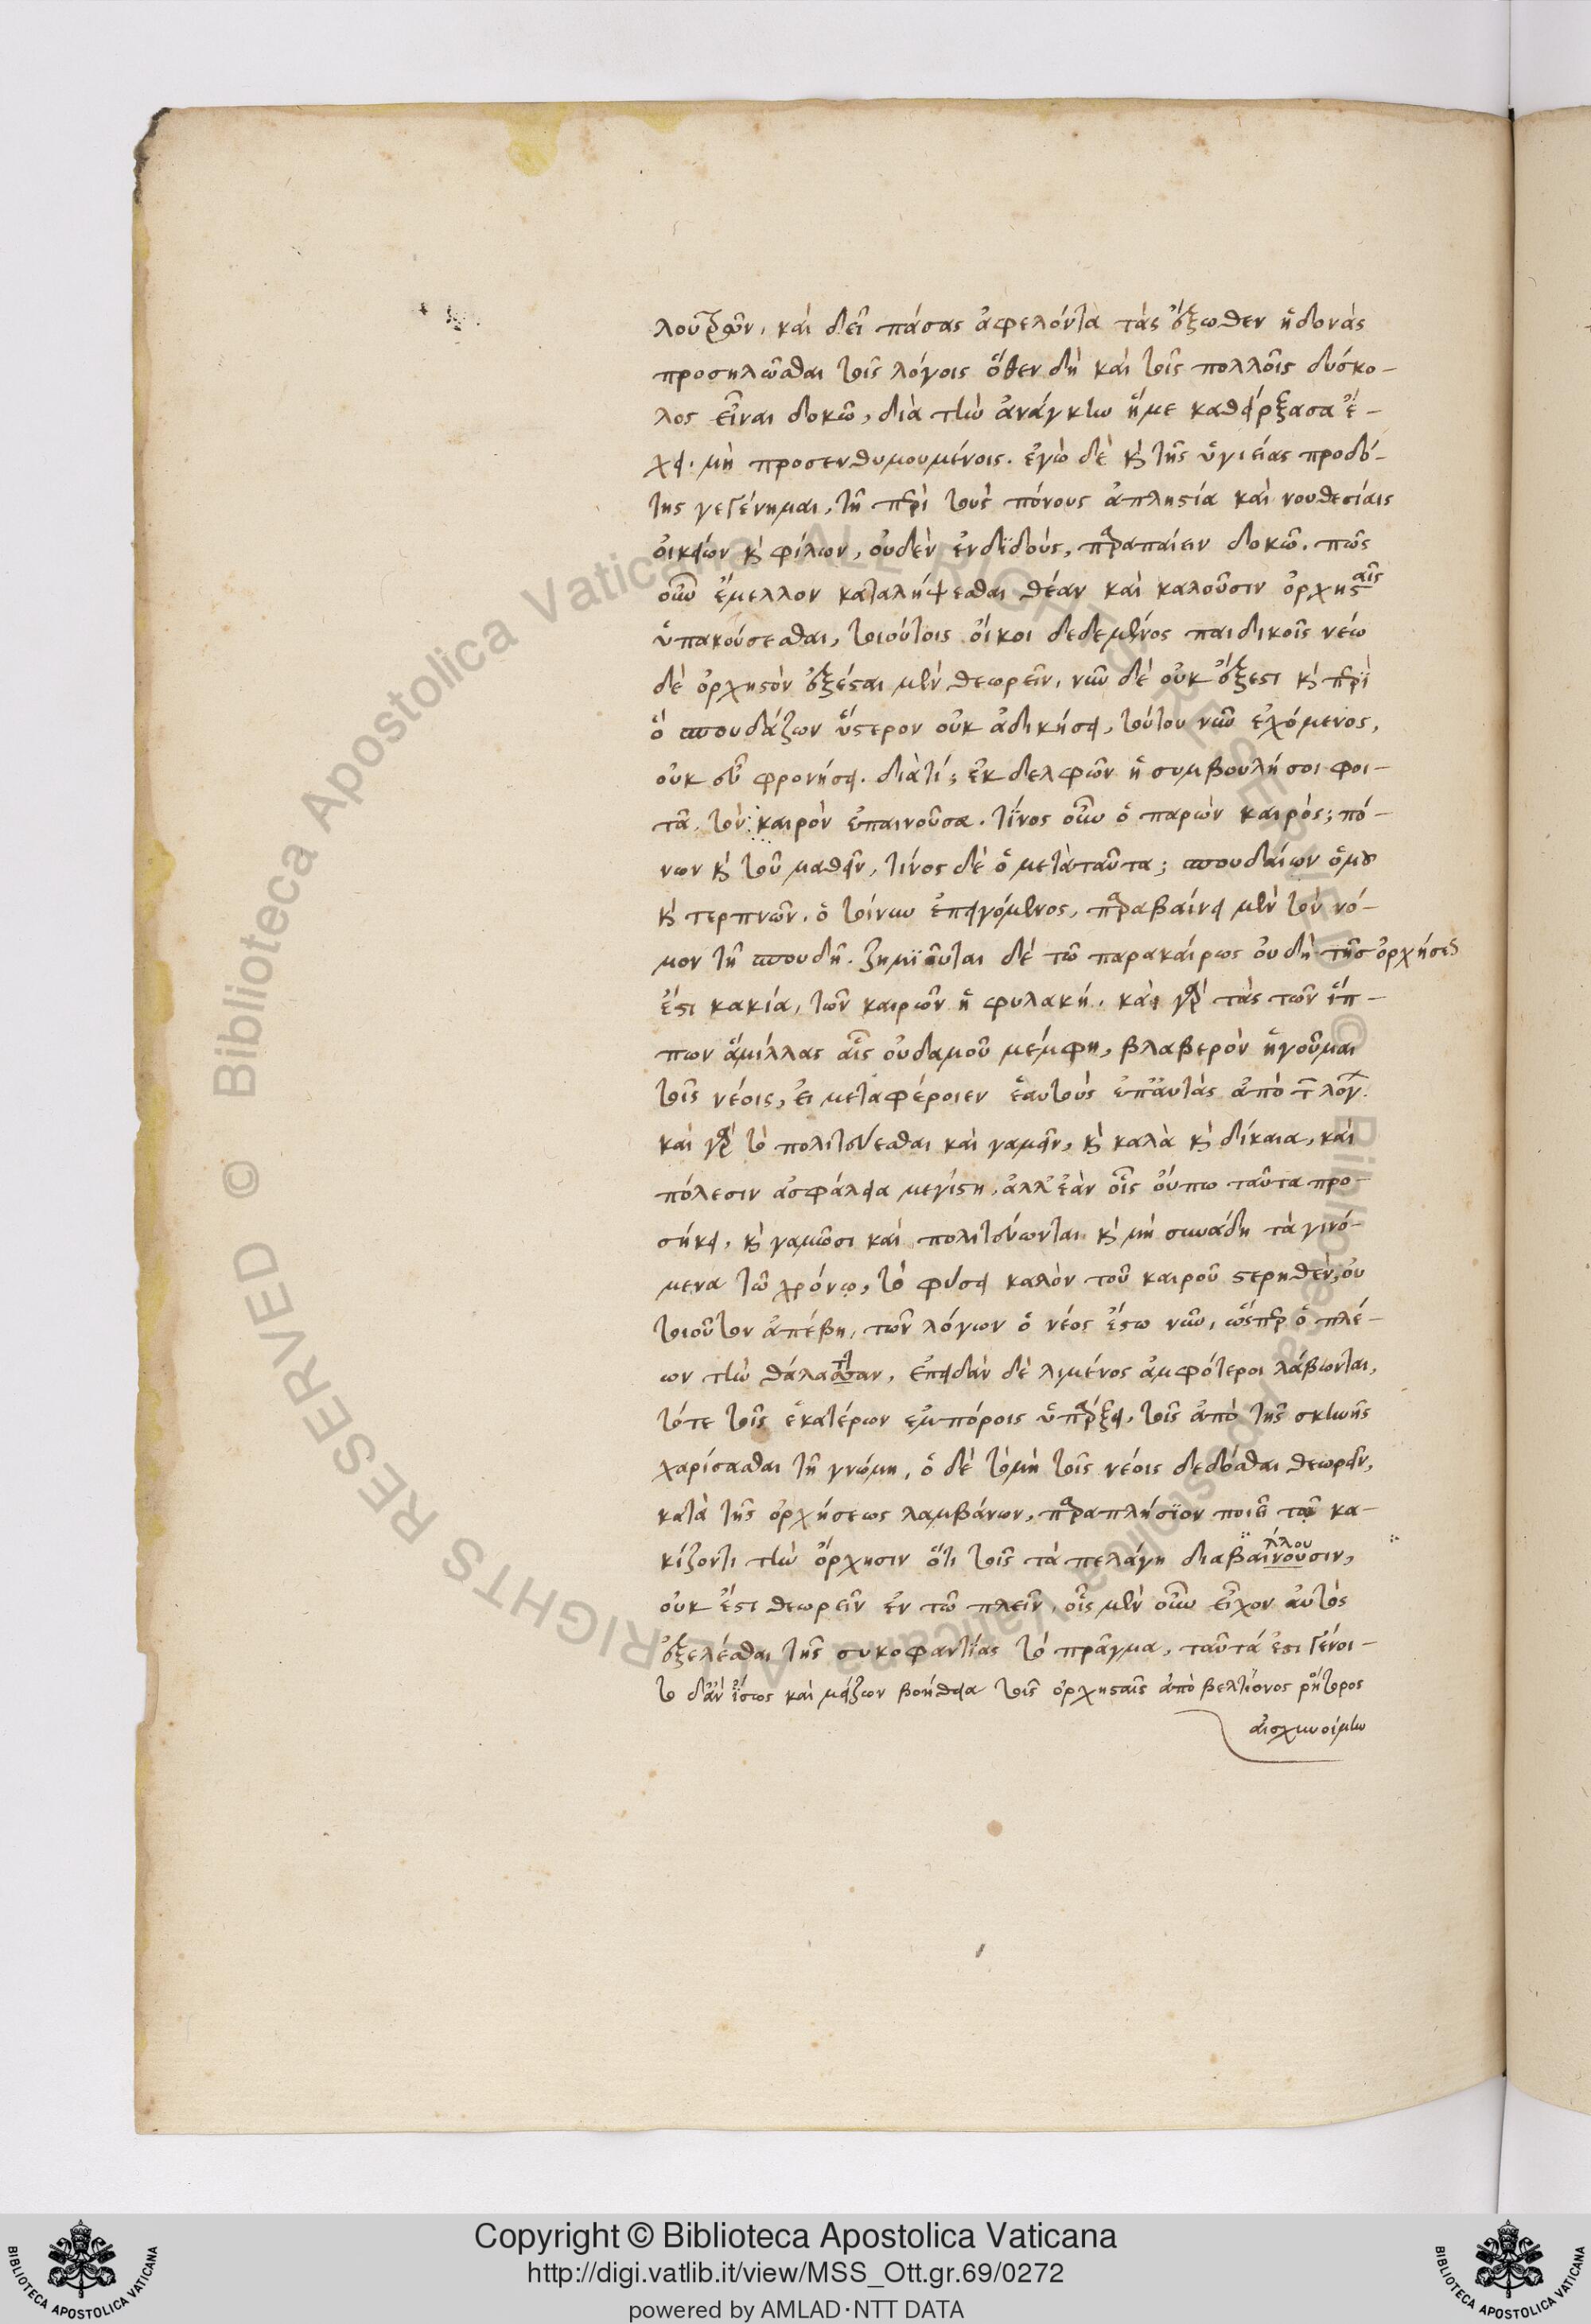 καὶ δεῖ πάσας ἀφελόντα τὰς ἔξωθεν ἡδονὰς
προσηλῶσθαι τοῖς λόγοις ὅθεν δὴ καὶ τοῖς πολλοῖς δύσκο-
λος εἶναι δοκῶ, διὰ τὴν ἀνάγκην ἥ με καθείρξασα ἔ-
χει. μὴ προσενθυμουμένοις. ἐγὼ δὲ κὶ τῆς ὑγιείας προδό-
της γεγένημαι, τῇ περὶ τοὺς πόνους ἀπληστία καὶ νουθεσίαις
οἰκείων κὶ φίλων, οὐδὲν ἐνδϊδοὺς, παραπαίειν δοκῶ. πῶς
οὖν ἔμελλον καταλήψεσθαι θέαν καὶ καλοῦσιν ὀρχησταῖς
ὑπακούσεσθαι, τοιούτοις οἴκοι δεδεμένος παιδικοῖς νέω
δὲ ὀρχηστὸν ἐξέσται μὲν θεωρεῖν, νῦν δὲ οὐκ ἔξεστι κὶ περὶ
ὃ σπουδάζων ὕστερον οὐκ ἀδικήσει, τούτου νῦν ἐχόμενος,
οὐκ εὖ φρονήσει. διὰτί; ἐκ δελφῶν ἡ συμβουλή σοι φοι-
τᾶ, τὸν καιρὸν ἐπαινοῦσα. τίνος οὖν ὁ παρὼν καιρὸς; πό-
νων κὶ τοῦ μαθεῖν, τίνος δὲ ὁ μετὰταῦτα; σπουδαίων ὁμοῦ
κὶ τερπνῶν. ὁ τοίνυν ἐπειγόμενος, παραβαίνει μὲν τὸν νό-
μον τῇ σπουδῇ. ζημϊοῦται δὲ τῶ παρακαίρως οὐδὴ τῆς ὀρχήσεως
ἔστι κακία, τῶν καιρῶν ἡ φυλακή. καὶ γὰρ τὰς τῶν ἵπ-
πων ἁμίλλας αἷς οὐδαμοῦ μέμφη, βλαβερὸν ἡγοῦμαι
τοῖς νέοις, εἰ μεταφέροιεν ἑαυτοὺς ἐπ' αὐτὰς ἀπὸ τ λόγ
καὶ γὰρ τὸ πολιτεύεσθαι καὶ γαμεῖν, κὶ καλὰ κὶ δίκαια, καὶ
πόλεσιν ἀσφάλεια μεγίστη, ἀλλ' ἐὰν οἷς οὔπω ταῦτα προ-
σήκει, κὶ γαμῶσι καὶ πολιτεύωνται κὶ μὴ συνάδη τὰ γινό-
μενα τῶ χρόνῳ, τὸ φύσει καλὸν τοῦ καιροῦ στερηθὲν, οὐ
τοιοῦτον ἀπέβη, τῶν λόγων ὁ νέος ἔστω νῦν, ὥσπερ ὁ πλέ-
ων τὴν θάλασσαν, ἐπειδὰν δὲ λιμένος ἀμφότεροι λάβωνται,
τότε τοῖς ἑκατέρων ἐμπόροις ὑπάρξει, τοῖς ἀπὸ τῆς σκηνῆς
χαρίσασθαι τῇ γνώμη, ὁ δὲ τὸ μὴ τοῖς νέοις δεδόσθαι θεωρεῖν,
κατὰ τῆς ὀρχήσεως λαμβάνων, παραπλήσϊον ποιεῖ τῶ κα-
κίζοντι τὴν ὄρχησιν ὅτι τοῖς τὰ πελάγη διαβαίνουσιν,
οὐκ ἔστι θεωρεῖν ἐν τῶ πλεῖν, οἷς μὲν οὖν εἶχον αὐτὸς
ἐξελέσθαι τῆς συκοφαντίας τὸ πρᾶγμα, ταῦτά ἐστι γένοι-
το δ' ἂν ἴσως καὶ μείζων βοήθεια τοῖς ὀρχησταῖς ἀπὸ βελτίονος ῥήτορος
αἰσχυνοίμην
Copyright © Biblioteca Apostolica Vaticana
http://digi.vatlib.it/view/MSS_Ott.gr.69/0272
powered by AMLAD·NTT DATA